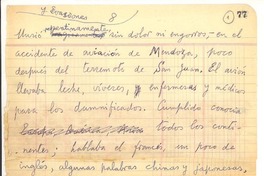 8
1 77
Murió repentinamente, sin dolor ni engorros, en el
accidente de aviación de Mendoza, poco
después del terremoto de San Juan. El avión
llevaba leche, víveres, y enfermeras y médicos
para los damnificados. Cumplido conocía
todos los conti-
nentes; hablaba el francés, un poco de
inglés, algunas palabras chinas y japonesas,